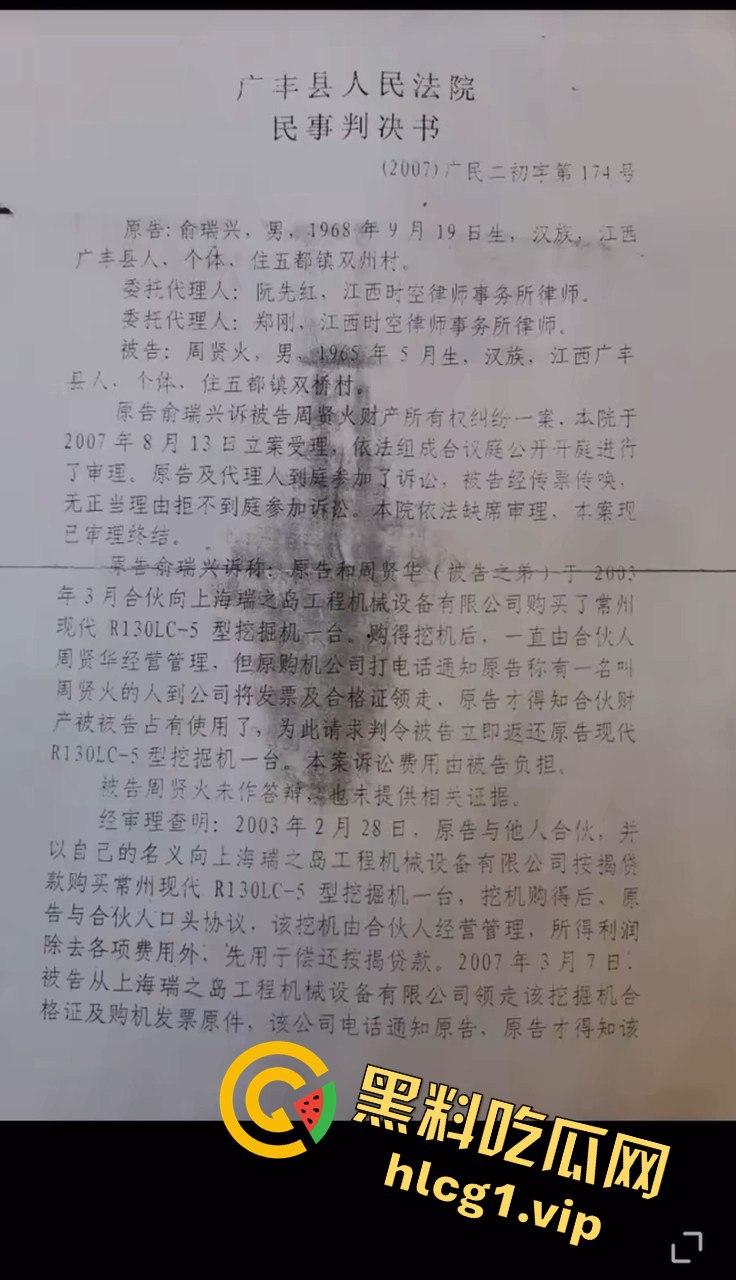 广丰县人民法院
民事判决书
(2007)广民二初字第174号
原告:俞瑞兴,男,1968年9月19日生,汉族,江西
广丰县人、个体、住五都镇双州村。
委托代理人:阮先红,江西时空律师事务所律师。
委托代理人:郑刚,江西时空律师事务所律师。
被告:周贤火,男,1965年5月生,汉族,江西广丰
县人、个体、住五都镇双桥村。
原告俞瑞兴诉被告周贤火财产所有权纠纷一案,本院于
2007年8月13日立案受理,依法组成合议庭公开开庭进行
了审理。原告及代理人到庭参加了诉讼,被告经传票传唤,
无正当理由拒不到庭参加诉讼。本院依法缺席审理,本案现
已审理终结。
原告俞瑞兴诉称:原告和周贤华(被告之弟)于2003
年3月合伙向上海瑞之岛工程机械设备有限公司购买了常州
现代R130LC-5型挖掘机一台。购得挖机后,一直由合伙人
周贤华经营管理,但原购机公司打电话通知原告称有一名叫
周贤火的人到公司将发票及合格证领走,原告才得知合伙财
产被被告占有使用了,为此请求判令被告立即返还原告现代
R130LC-5型挖掘机一台。本案诉讼费用由被告负担。
被告周贤火未作答辩,也未提供相关证据。
经审理查明:2003年2月28日,原告与他人合伙,并
以自己的名义向上海瑞之岛工程机械设备有限公司按揭贷
款购买常州现代R130LC-5型挖掘机一台,挖机购得后,原
告与合伙人口头协议,该挖机由合伙人经营管理,所得利润
除去各项费用外,先用于偿还按揭贷款。2007年3月7日,
被告从上海瑞之岛工程机械设备有限公司领走该挖掘机合
格证及购机发票原件,该公司电话通知原告,原告才得知该
黑料吃瓜网
hlcg1.vip